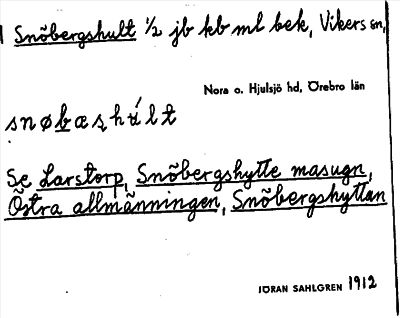 Snöbergshult ½ jb kb ml bek, Vikers sn,
Nora o. Hjulsjö hd, Örebro län
snøbæshúlt
Se Larstorp, Snöbergshytte masugn,
Östra allmänningen, Snöbergshyttan
JÖRAN SAHLGREN 1912